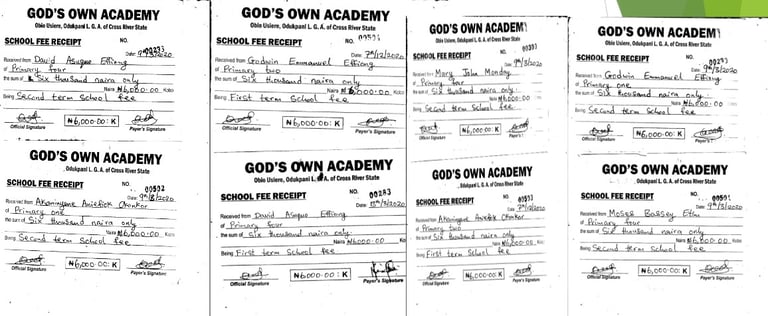 GOD'S OWN ACADEMY
Obio Usiere, Odukpani L. G. A. of Cross River State
SCHOOL FEE RECEIPT
NO. 00293
Date: 9th/3/2020
Received from David Asuquo Effiong
of Primary four
the sum of Six thousand naira only
Naira ₦6,000:00 Kobo
Being Second term School fee
₦6,000:00: K
Official Signature
Payer's Signature
GOD'S OWN ACADEMY
Obio Usiere, Odukpani L. G. A. of Cross River State
SCHOOL FEE RECEIPT
NO.
Date: 7th/12/2020
Received from Godwin Emmanuel Effiong
of Primary two
the sum of Six thousand naira only
Naira ₦6,000:00 Kobo
Being First term School fee
₦6,000:00: K
Official Signature
Payer's Signature
GOD'S OWN ACADEMY
Obio Usiere, Odukpani L. G. A. of Cross River State
SCHOOL FEE RECEIPT
NO.
Date: 9th/3/2020
Received from Mary John Monday
of Primary four
the sum of Six thousand naira only
Naira ₦6,000:00 Kobo
Being Second term School fee
₦6,000:00: K
Official Signature
Payer's
GOD'S OWN ACADEMY
Obio Usiere, Odukpani L. G. A. of Cross River State
SCHOOL FEE RECEIPT
NO.
Date: 9th/3/2020
Received from Godwin Emmanuel Effiong
of Primary one
the sum of Six thousand naira only
Naira ₦6,000:00 Kobo
Being Second term School fee
₦6,000:00: K
Official Signature
Payer's
GOD'S OWN ACADEMY
Obio Usiere, Odukpani L. G. A. of Cross River State
SCHOOL FEE RECEIPT
NO. 00502
Date: 9th/3/2020
Received from Akaninyene Aniefiok
of Primary one
the sum of Six thousand naira only
Naira ₦6,000:00 Kobo
Being Second term School fee
₦6,000:00: K
Official Signature
Payer's Signature
GOD'S OWN ACADEMY
Obio Usiere, Odukpani L. G. A. of Cross River State
SCHOOL FEE RECEIPT
NO. 00283
Date:
Received from David Asuquo Effiong
of Primary four
the sum of Six thousand naira only
Naira ₦6000:00 Kobo
Being First term School fee
₦6000:00: K
Official Signature
Payer's Signature
GOD'S OWN ACADEMY
, Odukpani L. G. A. of Cross River State
SCHOOL FEE RECEIPT
NO.
Date: 7th/12/2020
Received from Akaninyene Aniefiok
of Primary two
the sum of Six thousand naira only
Naira ₦6,000:00 Kobo
Being First term School fee
₦6,000:00: K
Official Signature
Payer's Signature
GOD'S OWN ACADEMY
, Odukpani L. G. A. of Cross River State
SCHOOL FEE RECEIPT
NO. 00501
Date: 9th/3/2020
Received from Moses Bassey
of Primary four
the sum of Six thousand naira only
Naira ₦6,000:00 Kobo
Being Second term School fee
₦6,000:00: K
Official Signature
Payer's Signature